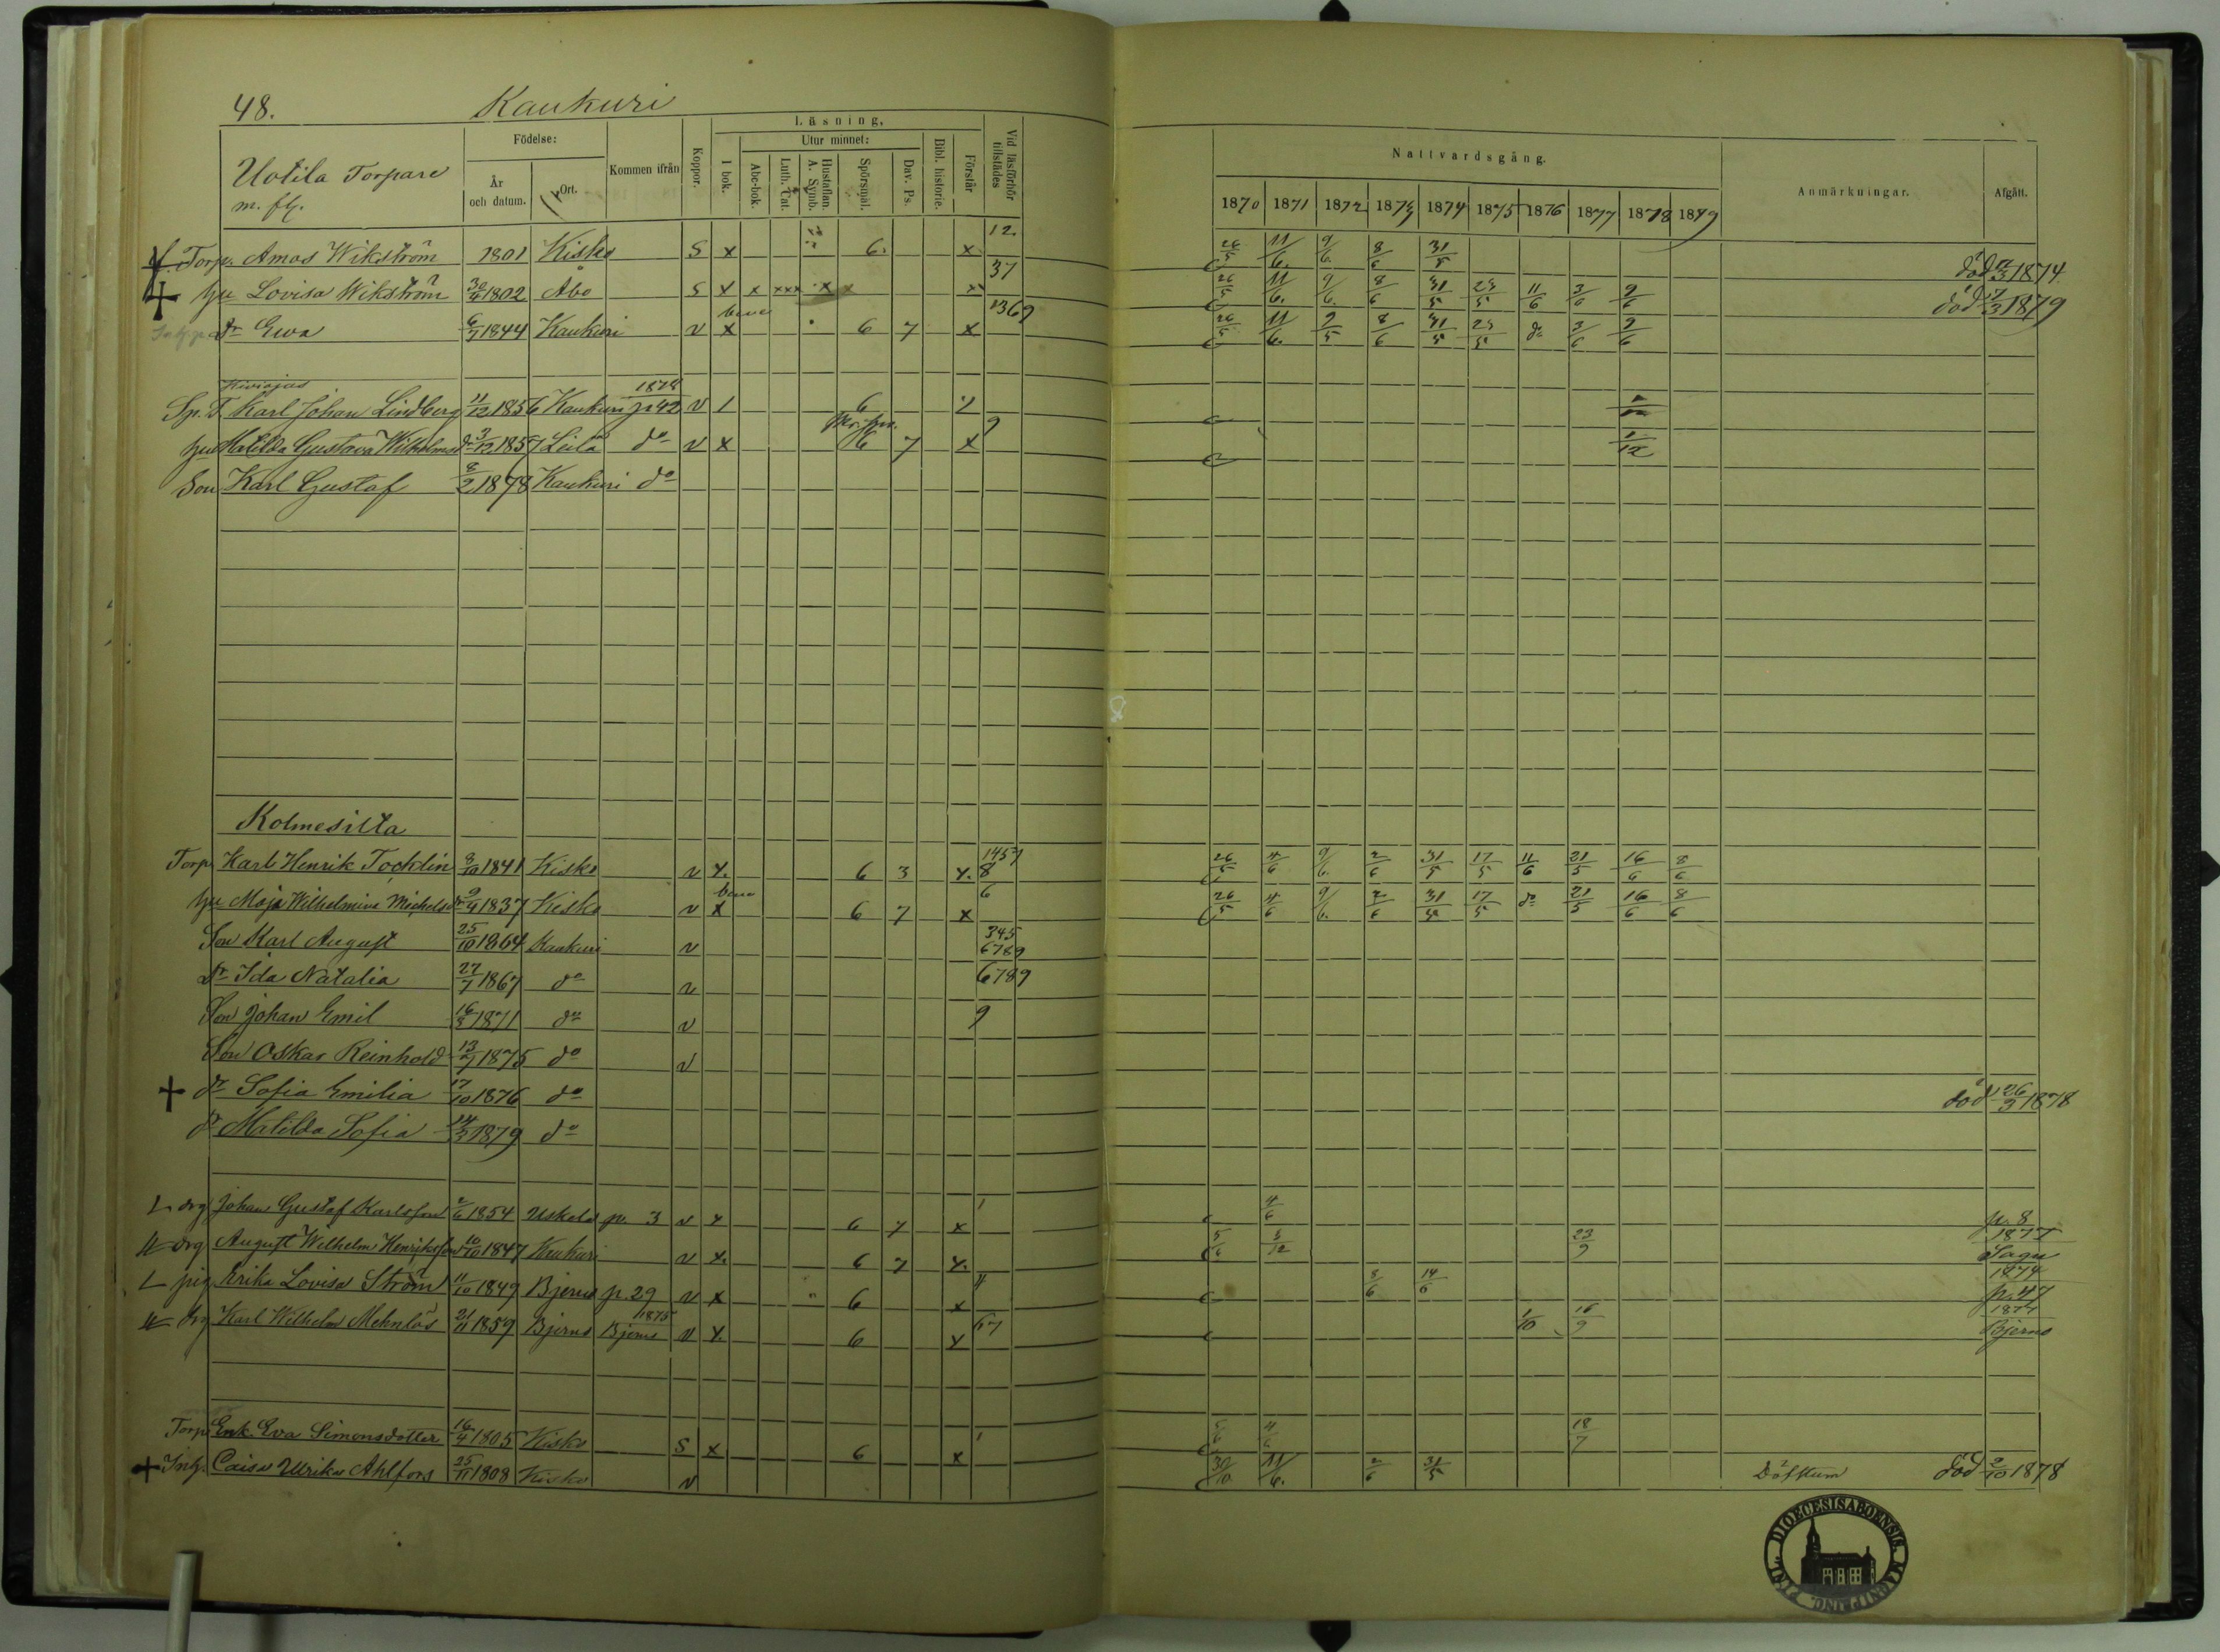 48. Kaukuri
Uotila Torpare
m. fl.
Födelse:
År och datum.
Ort.
Kommen ifrån
Koppor.
Läsning.
I bok.
Utur minnet:
Abc-bok.
Luth. Cat.
Hustaflan. A. Symb.
Spörsmål.
Dav. Ps.
Bibl. historie.
Förstår
Vid läsförhör tillstädes
Nattvardsgång.
1870 1871 1872 1873 1874 1875 1876 1877 1878 1879
Anmärkningar.
Afgått.
f. Torp. Amos Wikström 1801 Kisko S x 6. x 12. 26/5 11/6. 9/6. 8/6 31/5 död 1874
hu Lovisa Wikström 30/4 1802 Åbo S x x xxx x x x 37 26/5 11/6. 9/6. 8/6 31/5 23/5 11/6 3/6 9/6 död 1879
dr Ewa 6/7 1844 Kaukuri v bene x 6 7 x 1369 26/5 11/6. 9/5 8/6 31/5 23/5 do 3/6 9/6
Sp. T. Karl Johan Lindberg 11/12 1856 Kaukuri 1878 p 42 v 1 6
hu Matilda Gustava Wilhelmsdr 3/12 1857 Leilä do v x 6 7 x 9 1/12
Son Karl Gustaf 8/2 1878 Kaukuri do
Kolmesilta
Torp Karl Henrik Tocklin 8/10 1841 Kisko v x. 6 3 x. 1457 8 26/5 4/6 9/6. 2/6 31/5 17/5 11/6 21/5 16/6 8/6
hu Maja Wilhelmina Michelsdr 9/4 1837 Kisko v bene x 6 7 x 6 26/5 4/6 9/6. 2/6 31/5 17/5 do 21/5 16/6 8/6
Son Karl August 25/10 1864 Kaukuri v 345 6789
Dr Ida Natalia 27/7 1867 do v 6789
Son Johan Emil 16/5 1871 do v 9
Son Oskar Reinhold 13/7 1875 do v
dr Sofia Emilia 17/10 1876 do död 26/3 1878
dr Matilda Sofia 14/3 1879 do
drg Johan Gustaf Karlsson 2/6 1854 Uskela p. 3 v x 6 7 x 1 4/6 p. 8
drg August Wilhelm Henriksson 10/10 1847 Kaukuri v x. 6 7 x. 5/6 3/12 23/9 1877 Sagu
pig Erika Lovisa Ström 11/10 1849 Bjerno p. 29 v x 6 x 4 8/6 14/6 1874 p. 47
drg Karl Wilhelm Mehnlös 21/11 1859 Bjerno 1875 Bjerno v x. 6 x 67 1/10 16/9 1877 Bjerno
Torp Enk. Eva Simonsdotter 16/4 1805 Kisko S x 6 x 1 5/6 4/6 18/7
Inh. Caisa Ulrika Ahlfors 25/11 1808 Kisko v 30/10 11/6. 2/6 31/5 Döfstum död 2/10 1878